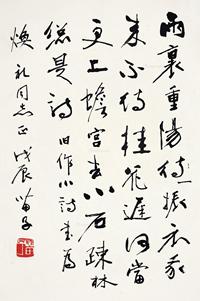 雨裏重陽待振衣我
来不待桂花遲何當
更上蟾宮去小石疎林
總是詩 旧作小詩書為
煥礼同志正 戊辰 苗子